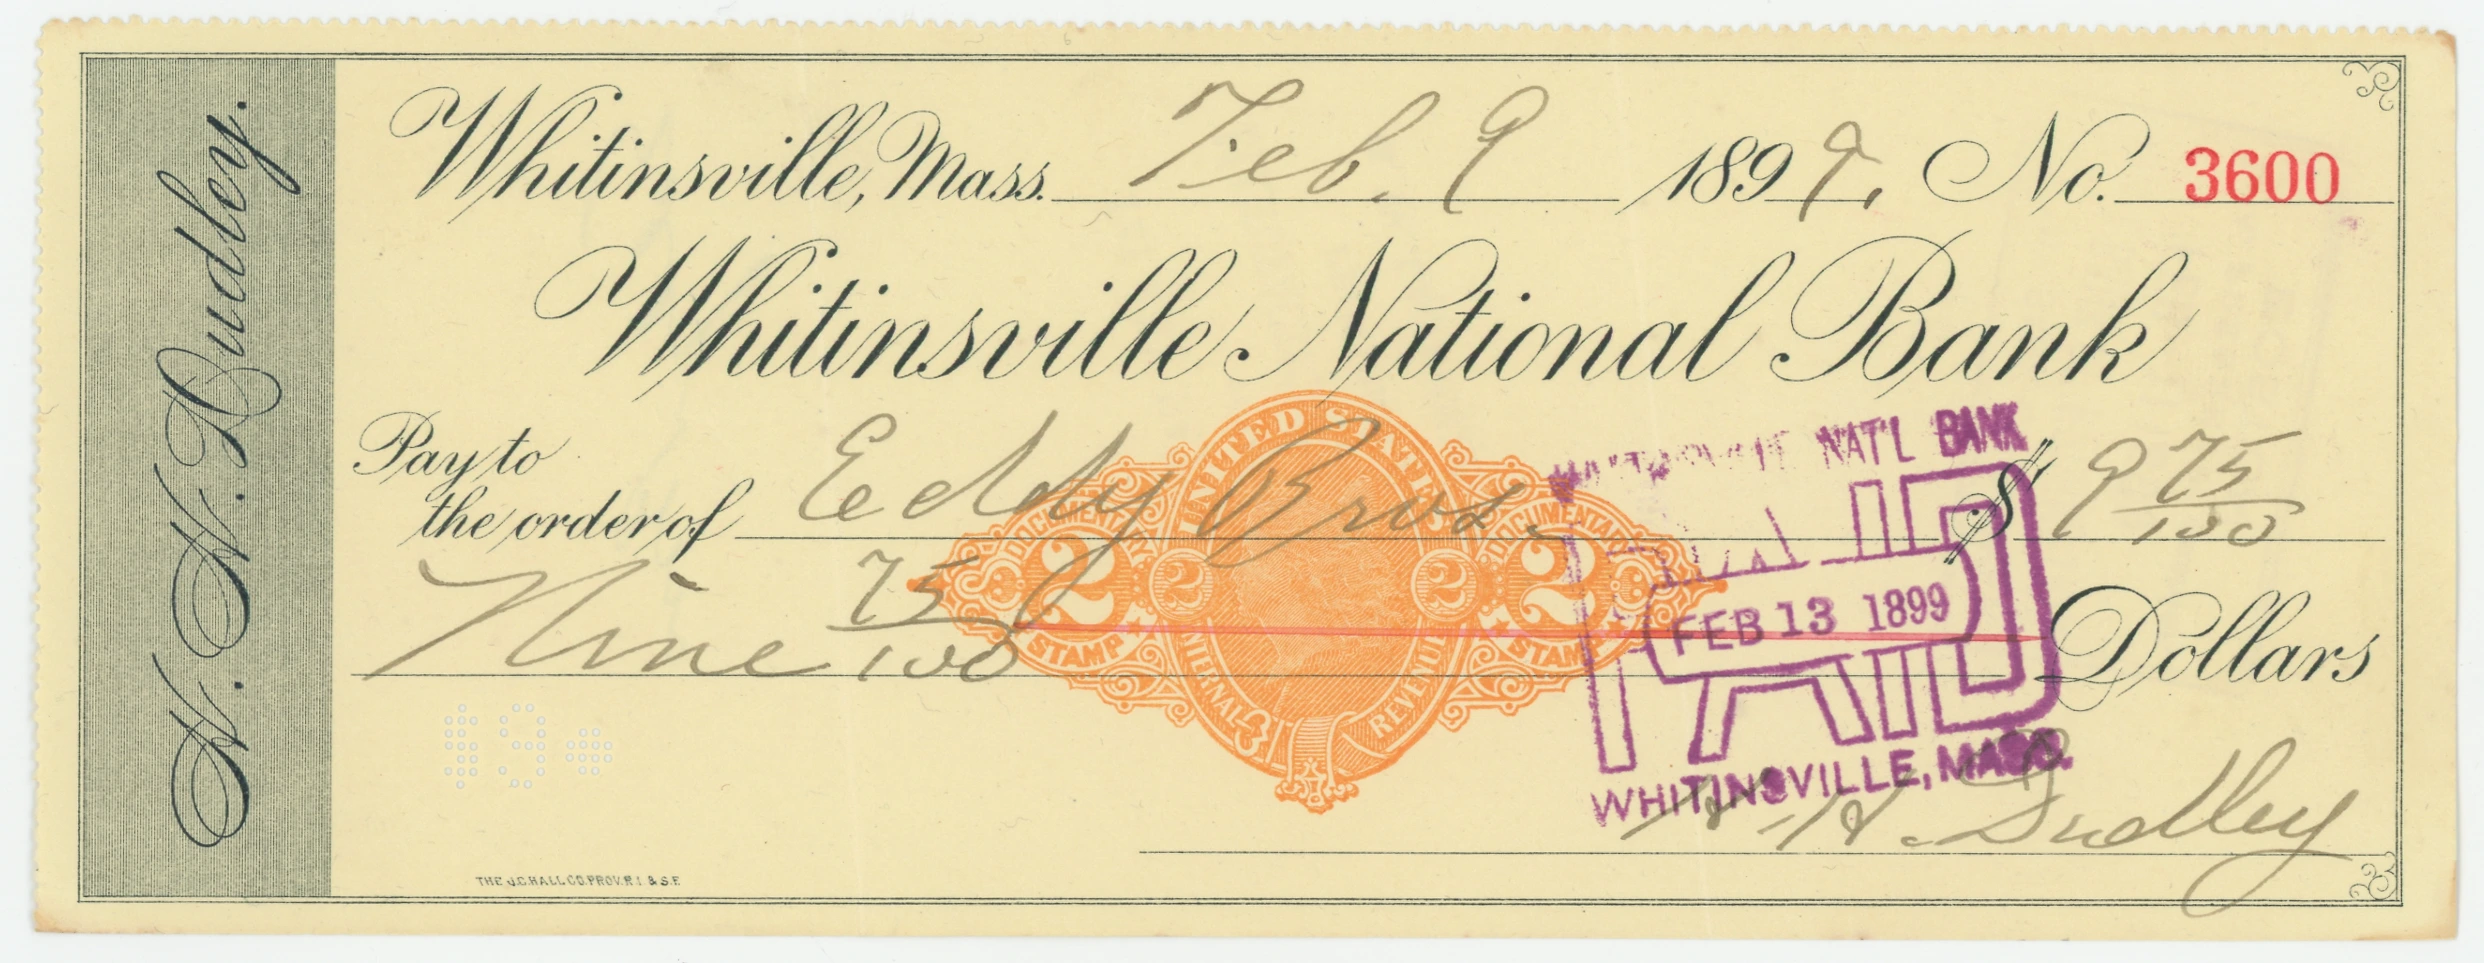 N. N. Dudley.
Whitinsville, Mass. Feb. 9 1899. No. 3600
Whitinsville National Bank
Pay to
the order of Eddy Bros. $ 9 75/100
Nine 75/100 Dollars
UNITED STATES
DOCUMENTARY DOCUMENTARY
2 2 2 2
STAMP STAMP
INTERNAL REVENUE
WHITINSVILLE NAT'L BANK
PAID
FEB 13 1899
WHITINSVILLE, MASS.
N. N. Dudley
THE J.C. HALL CO. PROV. R.I. & S.F.